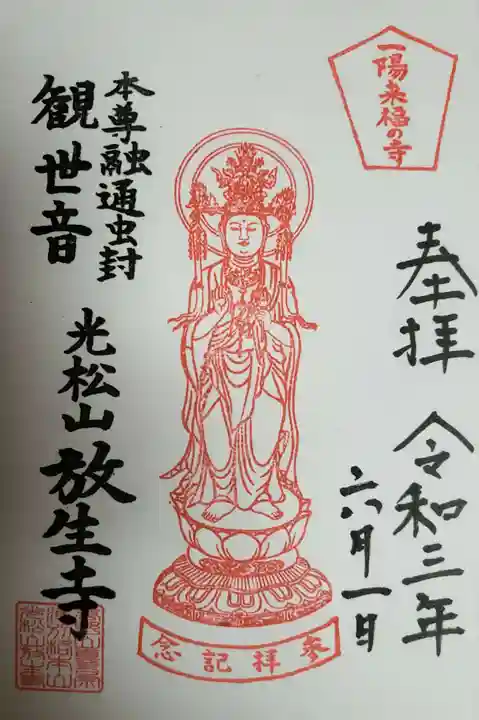 一陽来福の寺
奉拝 令和三年
六月一日
本尊融通虫封
観世音
光松山 放生寺
参拝記念